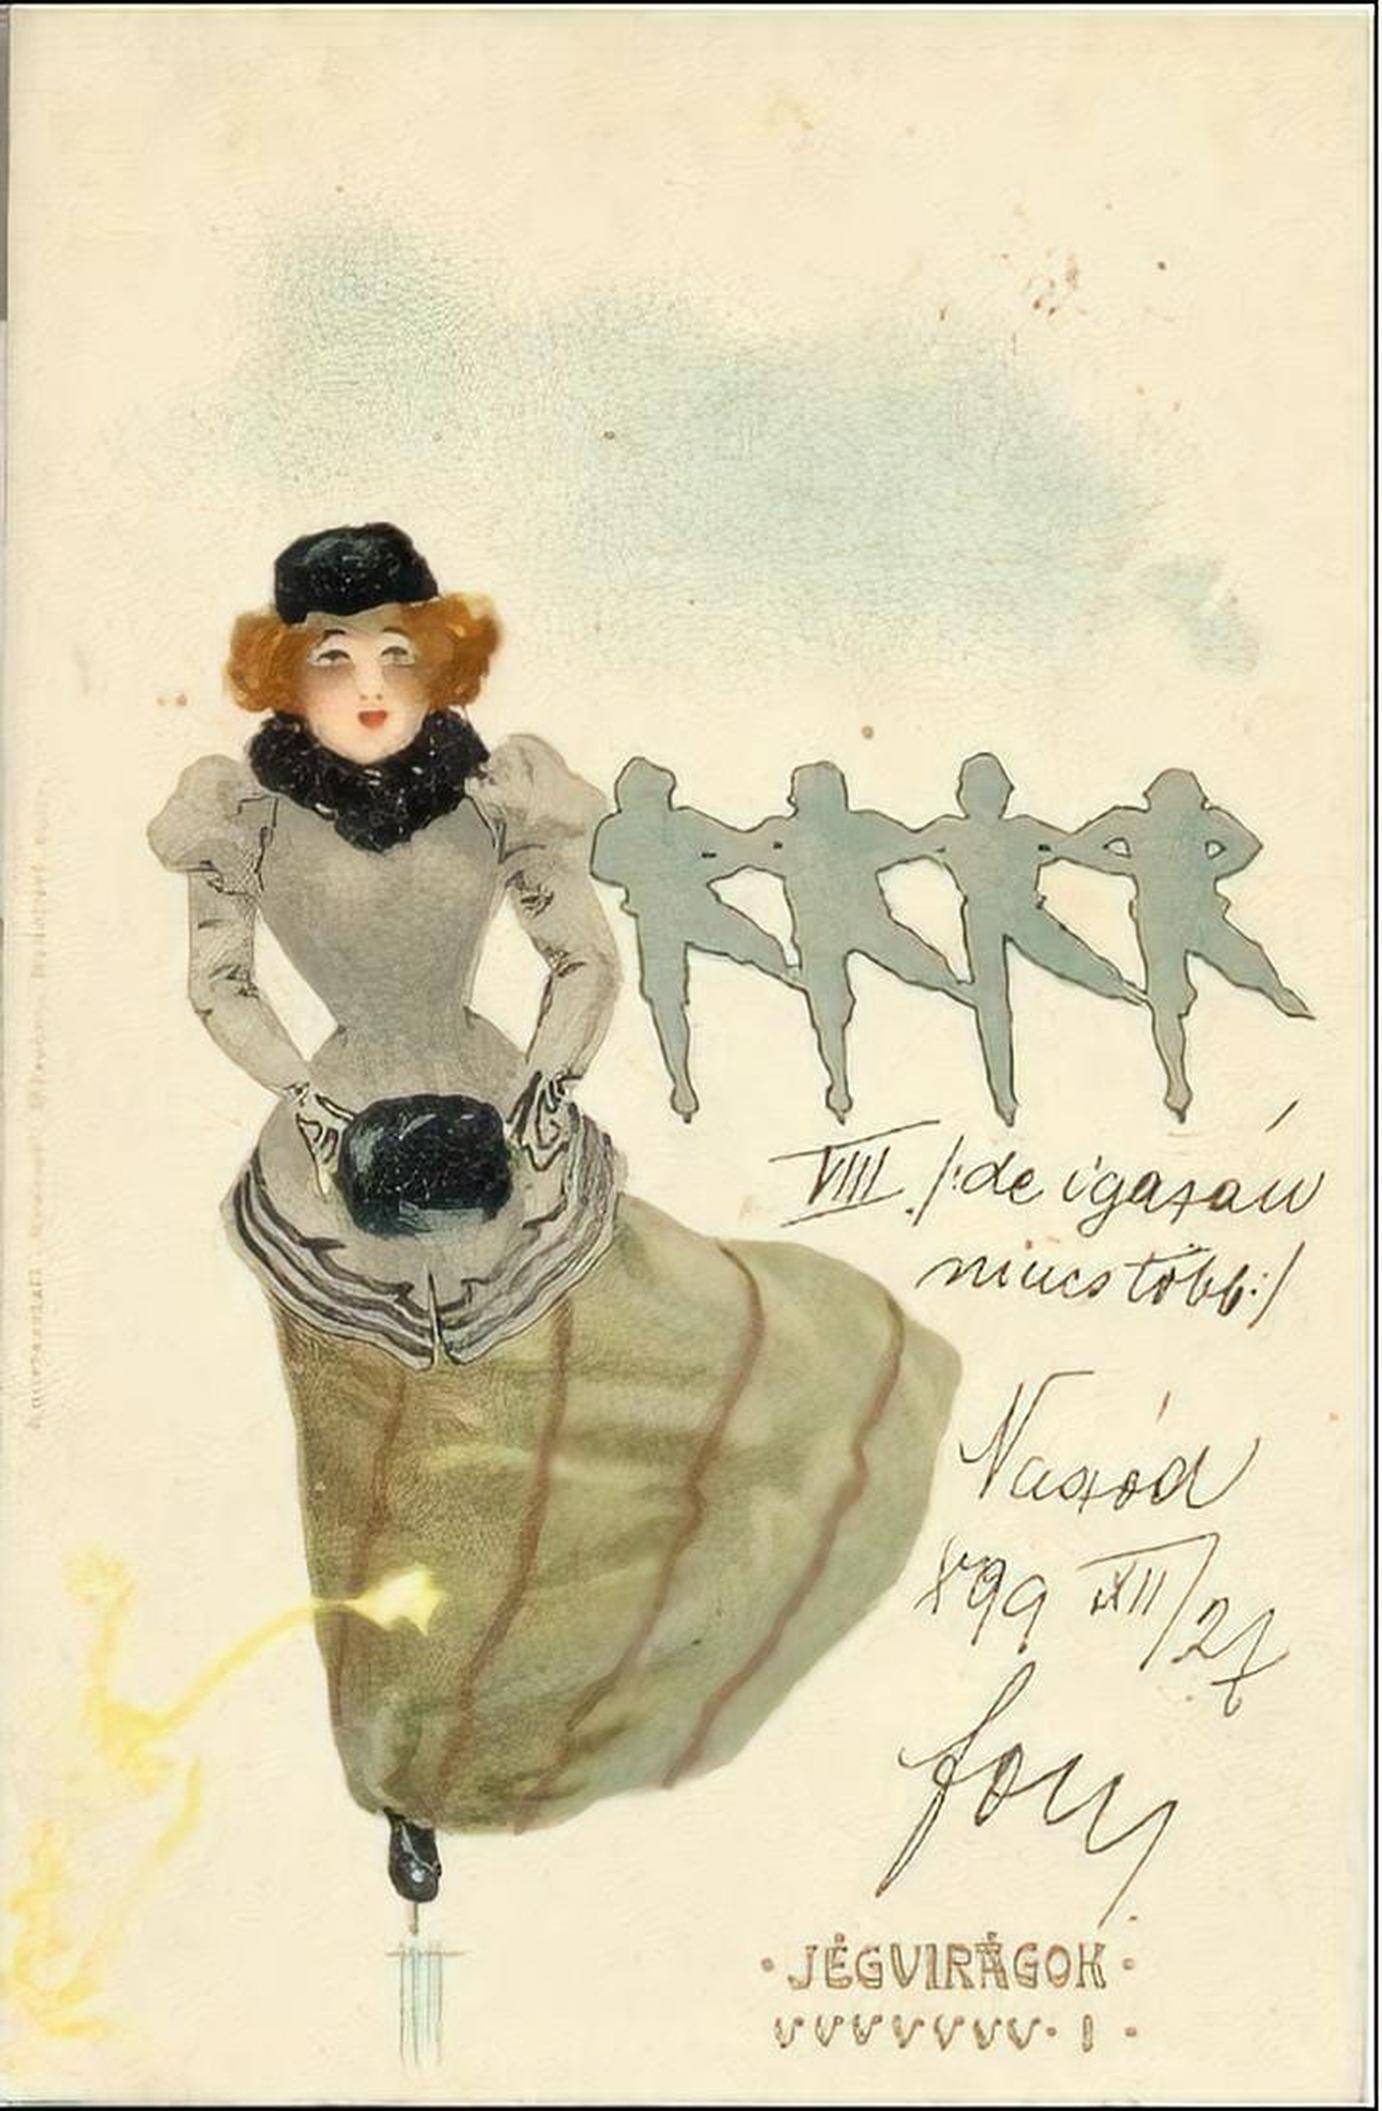 VIII. /: de igazán
nincs több :/
Naszód
899 XII/27
JÉGVIRÁGOK
I